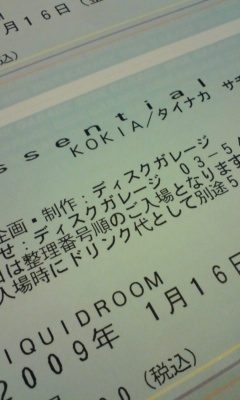 月１６日（金）
ssential
KOKIA/タイナカ サチ
企画・制作：ディスクガレージ
せ：ディスクガレージ ０３－５４
日は整理番号順のご入場となります
入場時にドリンク代として別途５
IQUIDROOM
２００９年 １月１６日
００（税込）